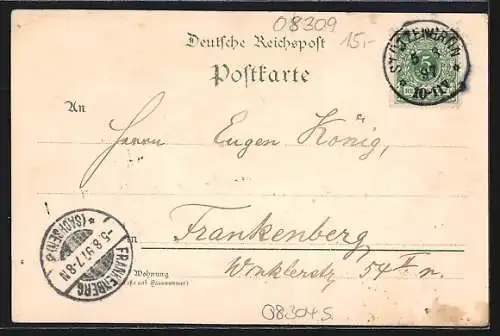 08309
15,-
Deutsche Reichspost
Postkarte
STÜTZENGRÜN
5 8
97
10-11V
5
An
Herrn Eugen König,
in Frankenberg
Winklerstr. 54 II n.
Wohnung
(Straße und Hausnummer)
FRANKENBERG
(SACHSEN)
-5.8.97.7-8N
08304 S.